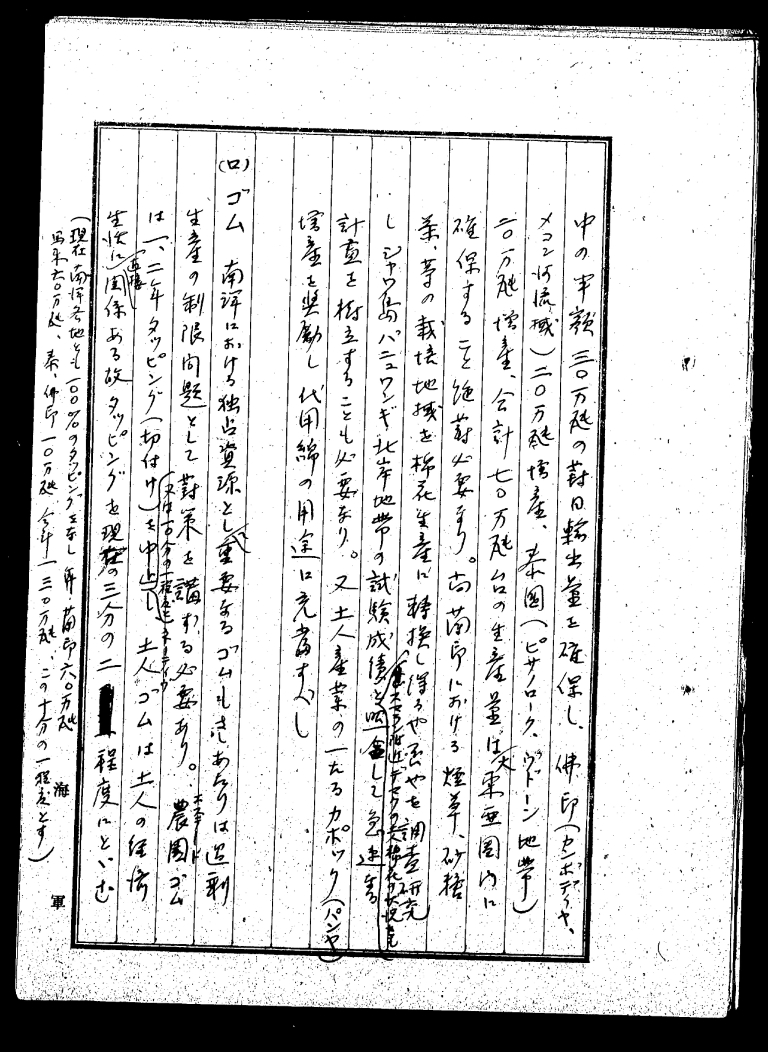 中の半額三〇万瓲の對日輸出量を確保し、佛印(カンボヂィヤ、
メコン河流域)二〇万瓲増産、泰國(ピサノローク、ウドーン地帶)
二〇万瓲増産、合計七〇万瓲台の生産量は大東亜圏内に
確保すること絶對必要なり。尚蘭印における煙草、砂糖
茶、等の栽培地域を棉花生産に轉換し得るや否やを調査研究
し ジャワ島バニュワンギ北岸地帶の試験成績と照合して急速なる
計畫を樹立することも必要なり。又土人産業の一たるカポック(パンヤ)
増産を奨励し代用綿の用途に充當すべし
(ロ) ゴム 南洋における独占資源とし重要なるゴムもさしあたりは過剰
生産の制限問題として對策を講ずる必要あり。農園ゴム
は一、二年タッピング(切付け)を中止し 土人ゴムは土人の経済
生活に直接関係ある故タッピングを現在の三分の二程度にとゞむ
(現在南洋各地とも一〇〇%のタッピングをなし年蘭印六〇万瓲
馬来六〇万瓲、泰、佛印一〇万瓲、合計一三〇万瓲、この十分の一程度とす)
海軍